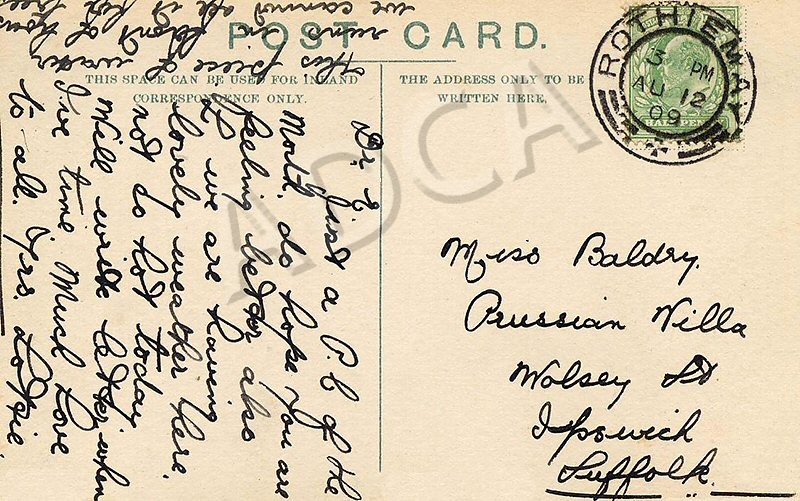 POST CARD.
THIS SPACE CAN BE USED FOR INLAND
CORRESPONDENCE ONLY.
THE ADDRESS ONLY TO BE
WRITTEN HERE.
ROTHIEMAY
3 PM
AU 12
09
HALFPENNY
Dr. E
Just a P.C of the
Month. do hope you are
feeling better also
we are having
lovely weather here.
not so hot today
Will write better when
I've time. Much Love
to all. Yrs. Lottie.
this piece of water
runs in front of house
we cannot see it for trees
Miss Baldry.
Prussian Villa
Wolsey St
Ipswich
Suffolk.
ADCA